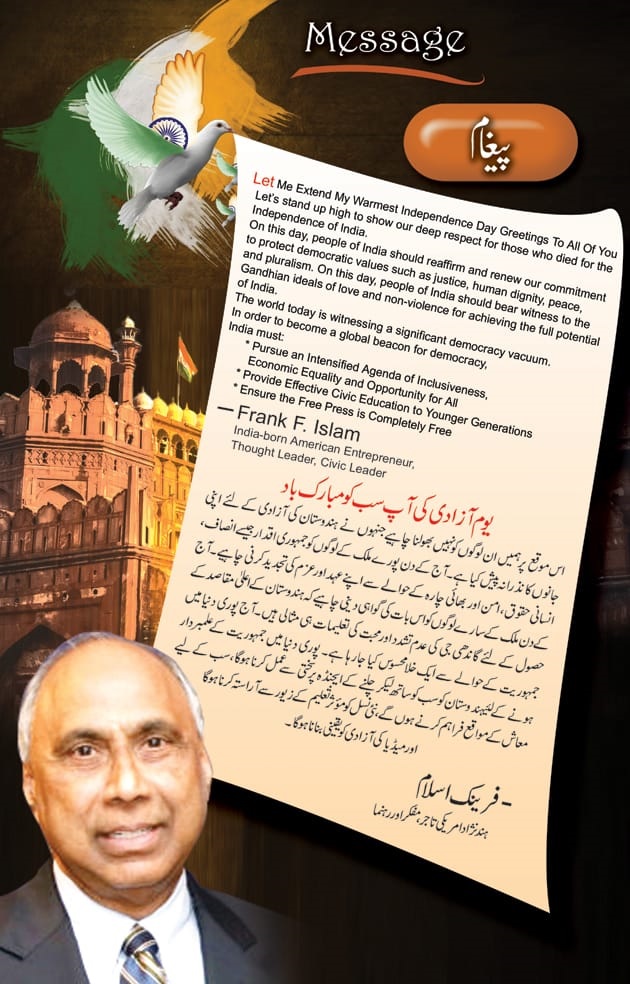 Message
پیغام
Let Me Extend My Warmest Independence Day Greetings To All Of You
Let's stand up high to show our deep respect for those who died for the
Independence of India.
On this day, people of India should reaffirm and renew our commitment
to protect democratic values such as justice, human dignity, peace,
and pluralism. On this day, people of India should bear witness to the
Gandhian ideals of love and non-violence for achieving the full potential
of India.
The world today is witnessing a significant democracy vacuum.
In order to become a global beacon for democracy,
India must:
* Pursue an Intensified Agenda of Inclusiveness,
Economic Equality and Opportunity for All
* Provide Effective Civic Education to Younger Generations
* Ensure the Free Press is Completely Free
– Frank F. Islam
India-born American Entrepreneur,
Thought Leader, Civic Leader
یوم آزادی کی آپ سب کو مبارک باد
اس موقع پر ہمیں ان لوگوں کو نہیں بھولنا چاہیے جنہوں نے ہندوستان کی آزادی کے لئے اپنی
جانوں کا نذرانہ پیش کیا ہے۔ آج کے دن پورے ملک کے لوگوں کو جمہوری اقدار جیسے انصاف،
انسانی حقوق، امن اور بھائی چارہ کے حوالے سے اپنے عہد اور عزم کی تجدید کرنی چاہیے۔ آج
کے دن ملک کے سارے لوگوں کو اس بات کی گواہی دینی چاہیے کہ ہندوستان کے اعلیٰ مقاصد کے
حصول کے لئے گاندھی جی کی عدم تشدد اور محبت کی تعلیمات ہی مثالی ہیں۔ آج پوری دنیا میں
جمہوریت کے حوالے سے ایک خلا محسوس کیا جا رہا ہے۔ پوری دنیا میں جمہوریت کے علمبردار
ہونے کے لئے ہندوستان کو سب کو ساتھ لیکر چلنے کے ایجنڈہ پر سختی سے عمل کرنا ہوگا، سب کے لیے
معاش کے مواقع فراہم کرنے ہوں گے، نئی نسل کو مؤثر تعلیم کے زیور سے آراستہ کرنا ہوگا
اور میڈیا کی آزادی کو یقینی بنانا ہوگا۔
- فرینک اسلام
ہند نژاد امریکی تاجر، مفکر اور رہنما